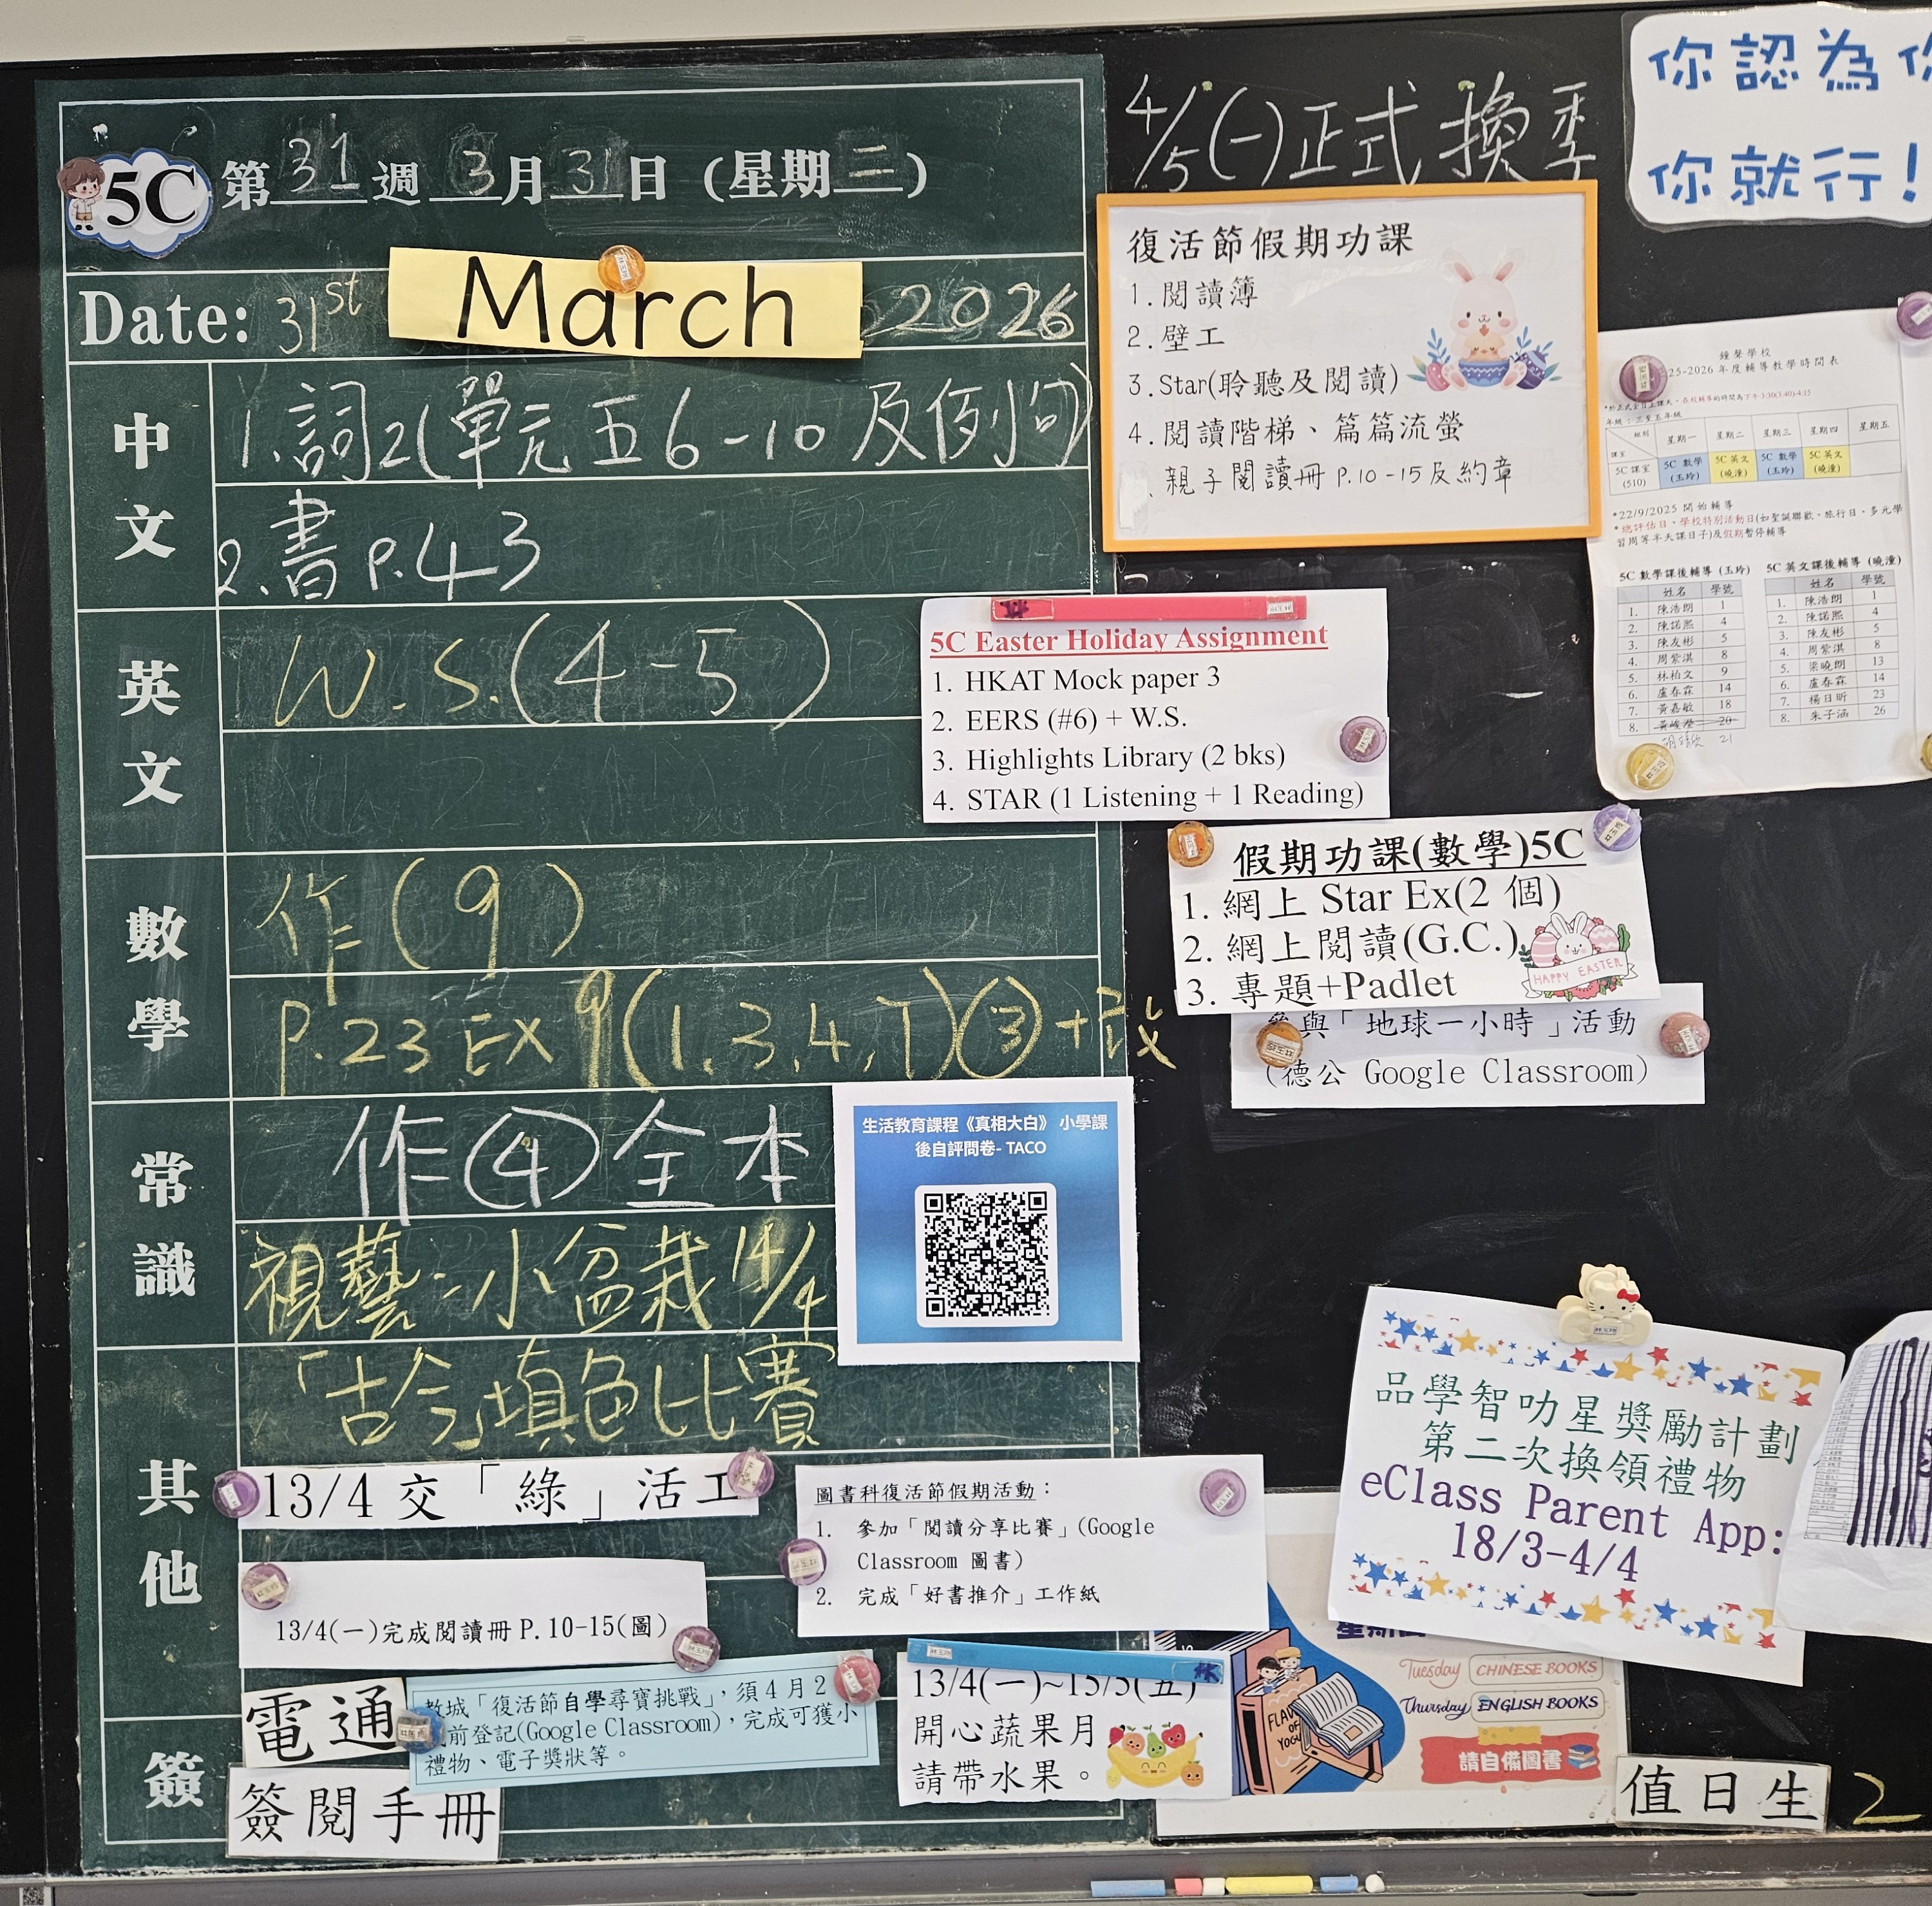 5C 第31週 3月31日 (星期二)
Date: 31st March 2026
中文
1.詞2(單元五6-10及例句)
2.書P.43
英文
W.S.(4-5)
數學
作(9)
P.23 EX 9(1,3,4,7)③+改
常識
作④全本
視藝:小盆栽14/4
其他
「古今」填色比賽
13/4 交「綠」活工
13/4(一)完成閱讀冊 P.10-15(圖)
簽
電通
簽閱手冊
城「復活節自學尋寶挑戰」,須4月2
前登記(Google Classroom),完成可獲小
禮物、電子獎狀等。
圖書科復活節假期活動:
1. 參加「閱讀分享比賽」(Google
Classroom 圖書)
2. 完成「好書推介」工作紙
13/4(一)~15/5(五)
開心蔬果月
請帶水果。
生活教育課程《真相大白》 小學課
後自評問卷- TACO
4/5(一)正式換季
復活節假期功課
1.閱讀簿
2.壁工
3.Star(聆聽及閱讀)
4.閱讀階梯、篇篇流螢
、親子閱讀冊 P.10-15及約章
5C Easter Holiday Assignment
1. HKAT Mock paper 3
2. EERS (#6) + W.S.
3. Highlights Library (2 bks)
4. STAR (1 Listening + 1 Reading)
假期功課(數學)5C
1. 網上 Star Ex(2 個)
2. 網上閱讀(G.C.)
3. 專題+Padlet
HAPPY EASTER
與「地球一小時」活動
(德公 Google Classroom)
你認為你
你就行!
鐘聲學校
25-2026 年度輔導教學時間表
年級:三至五年級
組別 星期一 星期二 星期三 星期四 星期五
課室
5C 課室 5C 數學 5C 英文 5C 數學 5C 英文
(510) (玉玲) (曉潼) (玉玲) (曉潼)
*22/9/2025 開始輔導
*總評估日、學校特別活動日(如聖誕聯歡、旅行日、多元學
習周等半天課日子)及假期暫停輔導
5C 數學課後輔導 (玉玲)
姓名 學號
1. 陳浩朗 1
2. 陳諾熙 4
3. 陳友彬 5
4. 周紫淇 8
5. 林柏文 9
6. 盧春霖 14
7. 黃嘉敏 18
8. 20
21
5C 英文課後輔導 (曉潼)
姓名 學號
1. 陳浩朗 1
2. 陳諾熙 4
3. 陳友彬 5
4. 周紫淇 8
5. 梁曉朗 13
6. 盧春霖 14
7. 楊日昕 23
8. 朱子涵 26
品學智叻星獎勵計劃
第二次換領禮物
eClass Parent App:
18/3-4/4
Tuesday CHINESE BOOKS
Thursday ENGLISH BOOKS
請自備圖書
FLAV
OF
YOGU
值日生 2